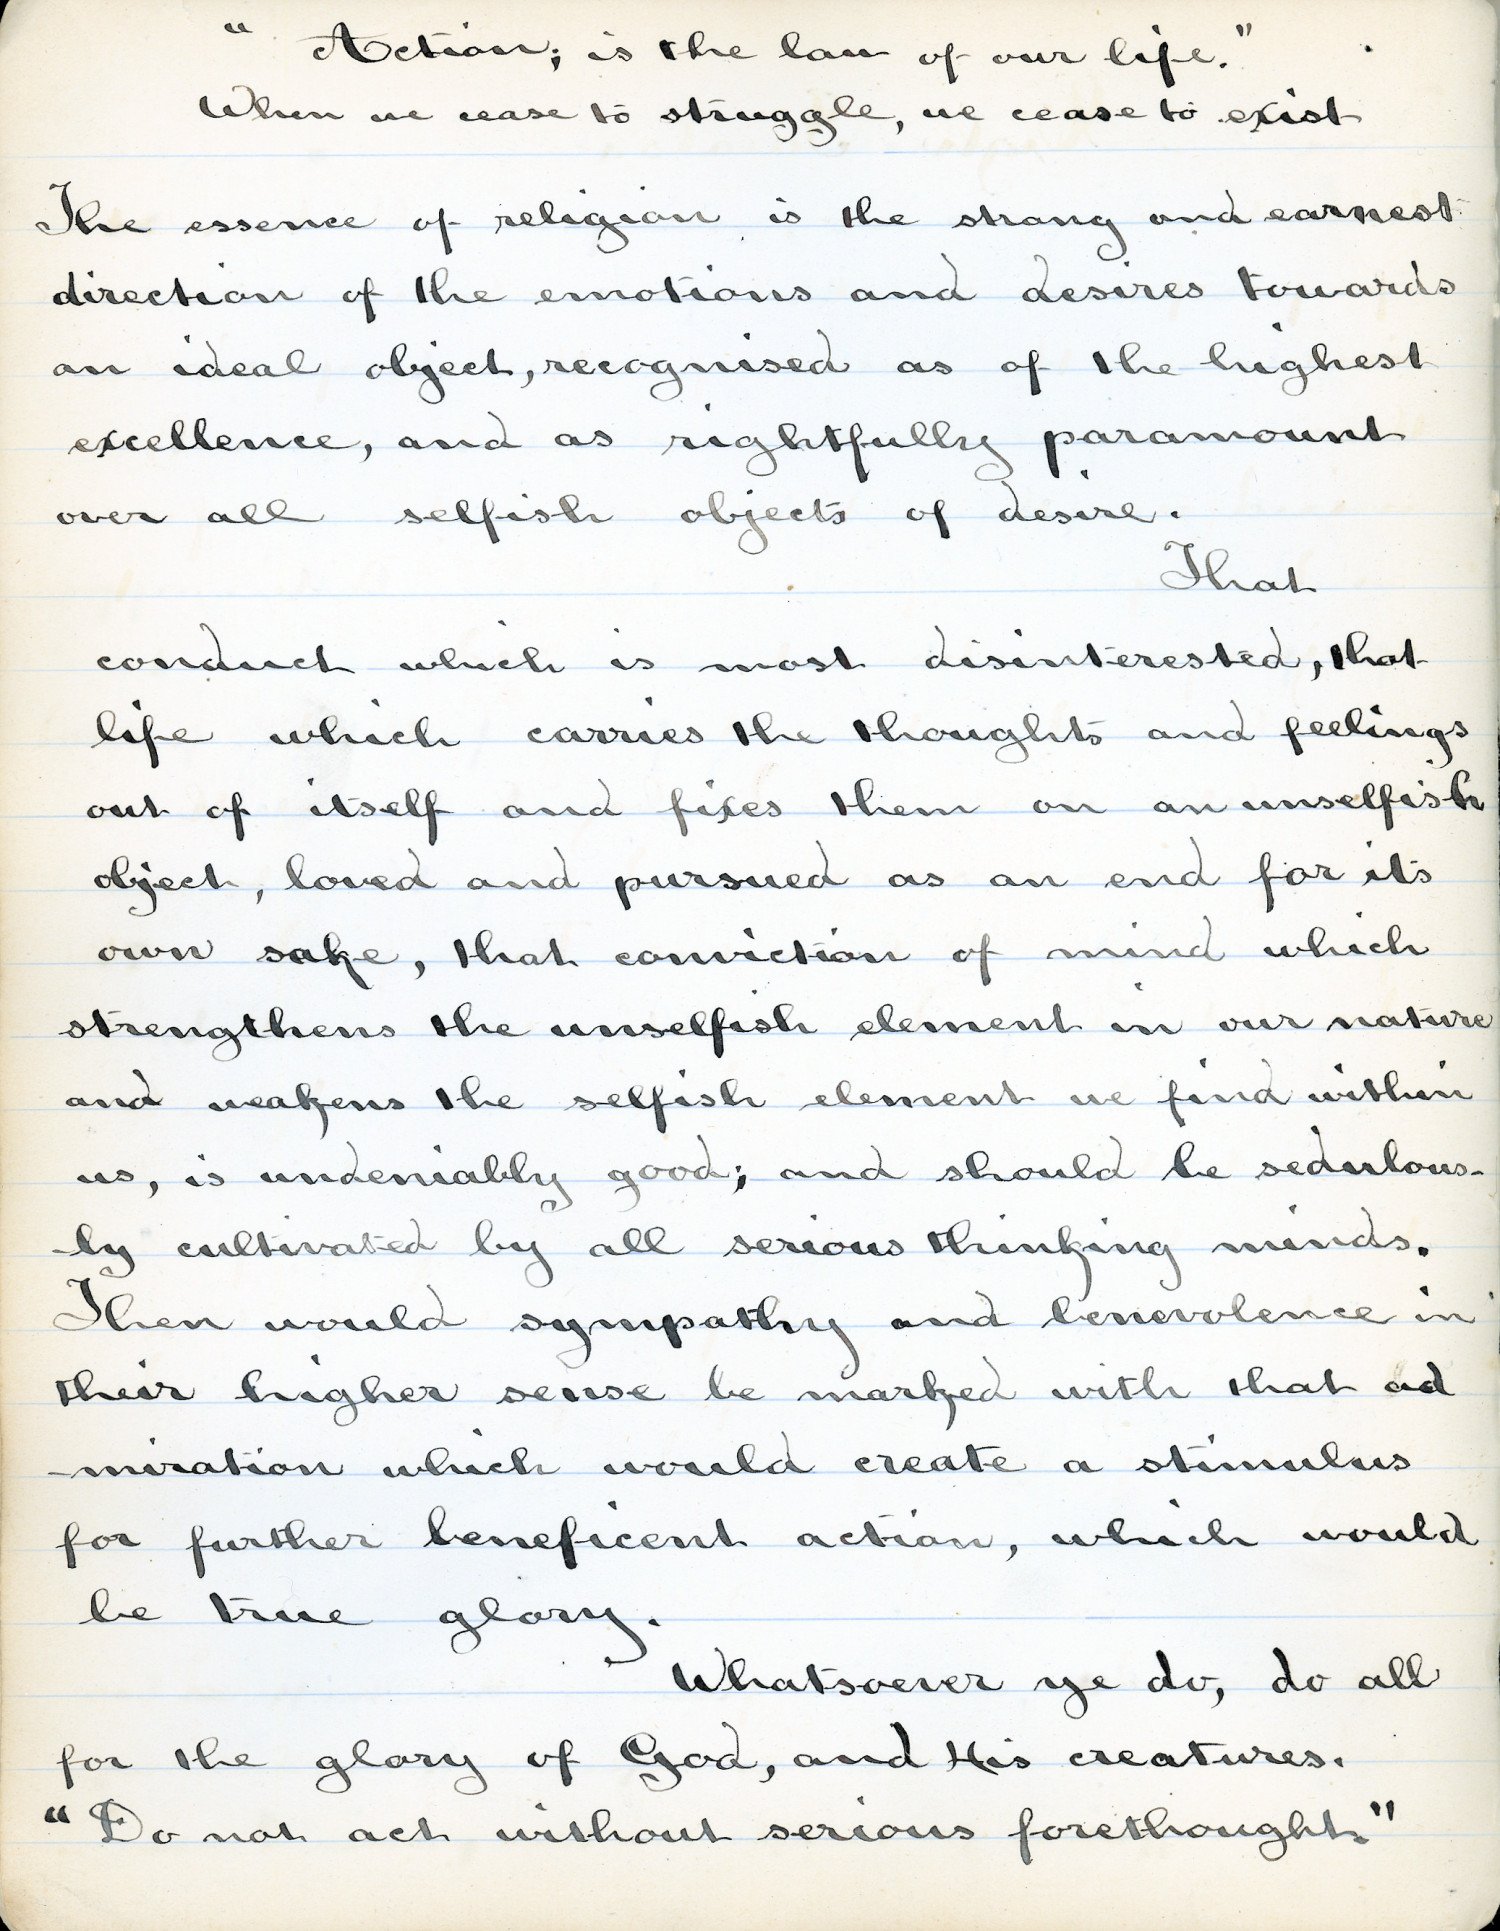 " Action; is the law of our life."
When we cease to struggle, we cease to exist
The essence of religion is the strong and earnest
direction of the emotions and desires towards
an ideal object, recognised as of the highest
excellence, and as rightfully paramount
over all selfish objects of desire.
That
conduct which is most disinterested, that
life which carries the thoughts and feelings
out of itself and fixes them on an unselfish
object, loved and pursued as an end for its
own sake, that conviction of mind which
strengthens the unselfish element in our nature
and weakens the selfish element we find within
us, is undeniably good; and should be sedulous-
-ly cultivated by all serious thinking minds.
Then would sympathy and benevolence in
their higher sense be marked with that ad
-miration which would create a stimulus
for further beneficent action, which would
be true glory.
Whatsoever ye do, do all
for the glory of God, and His creatures.
"Do not act without serious forethought."